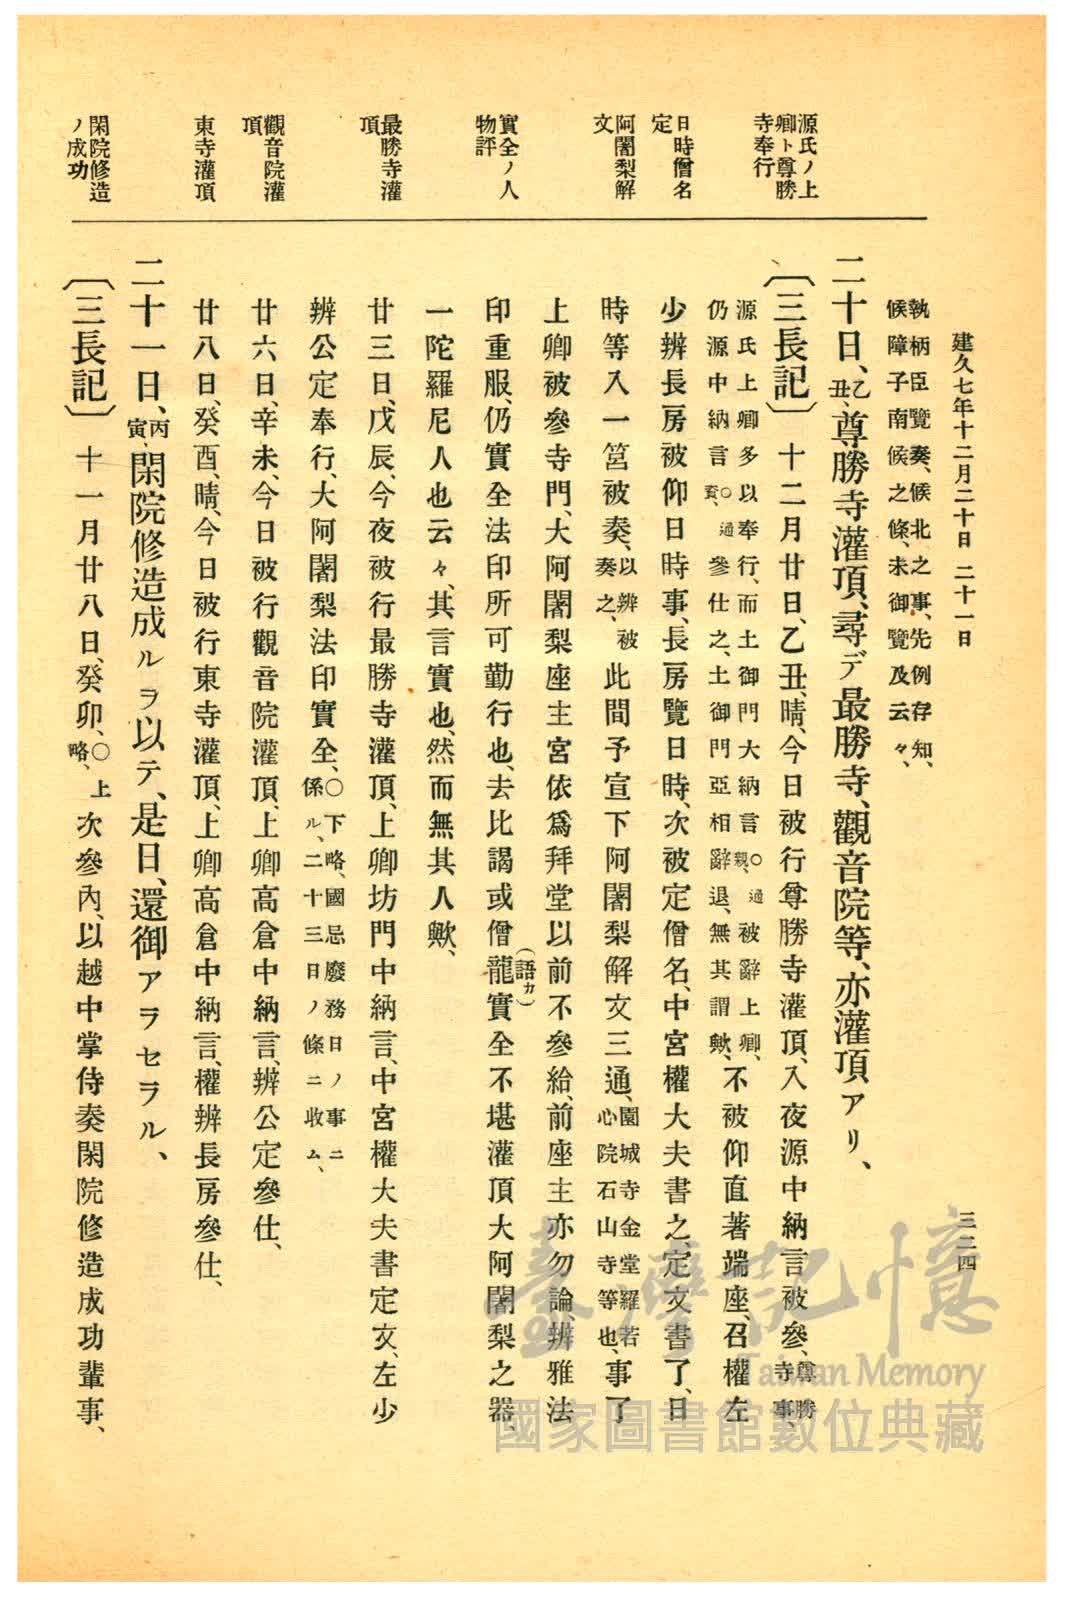 建久七年十二月二十日 二十一日
三二四
執柄臣覽奏、候北之事、先例存知、
候障子南候之條、未御覽及云々、
二十日、乙丑、尊勝寺灌頂、尋デ最勝寺、觀音院等、亦灌頂アリ、
源氏ノ上
卿ト尊勝
寺奉行
〔三長記〕十二月廿日、乙丑、晴、今日被行尊勝寺灌頂、入夜源中納言被參、尊勝寺事、
源氏上卿多以奉行、而土御門大納言○通親、被辭上卿、
仍源中納言○通資、參仕之、土御門亞相辭退、無其謂歟、不被仰直著端座、召權左
日時僧名
定
少辨長房被仰日時事、長房覽日時、次被定僧名、中宮權大夫書之、定文書了、日
阿闍梨解
文
時等入一筥被奏、以辨被奏之、此間予宣下阿闍梨解文三通、園城寺金堂羅若心院石山寺等也、事了
上卿被參寺門、大阿闍梨座主宮依爲拜堂以前不參給、前座主亦勿論、辨雅法
實全ノ人
物評
印重服、仍實全法印所可勤行也、去比謁或僧龍(語カ)實全不堪灌頂大阿闍梨之器、
一陀羅尼人也云々、其言實也、然而無其人歟、
最勝寺灌
頂
廿三日、戊辰、今夜被行最勝寺灌頂、上卿坊門中納言、中宮權大夫書定文、左少
辨公定奉行、大阿闍梨法印實全、○下略、國忌廢務日ノ事ニ係ル、二十三日ノ條ニ收ム、
觀音院灌
頂
廿六日、辛未、今日被行觀音院灌頂、上卿高倉中納言、辨公定參仕、
東寺灌頂
廿八日、癸酉、晴、今日被行東寺灌頂、上卿高倉中納言、權辨長房參仕、
二十一日、丙寅、閑院修造成ルヲ以テ、是日、還御アラセラル、
閑院修造
ノ成功
〔三長記〕十一月廿八日、癸卯、○上略、次參內、以越中掌侍奏閑院修造成功輩事、
臺灣記憶
Taiwan Memory
國家圖書館數位典藏